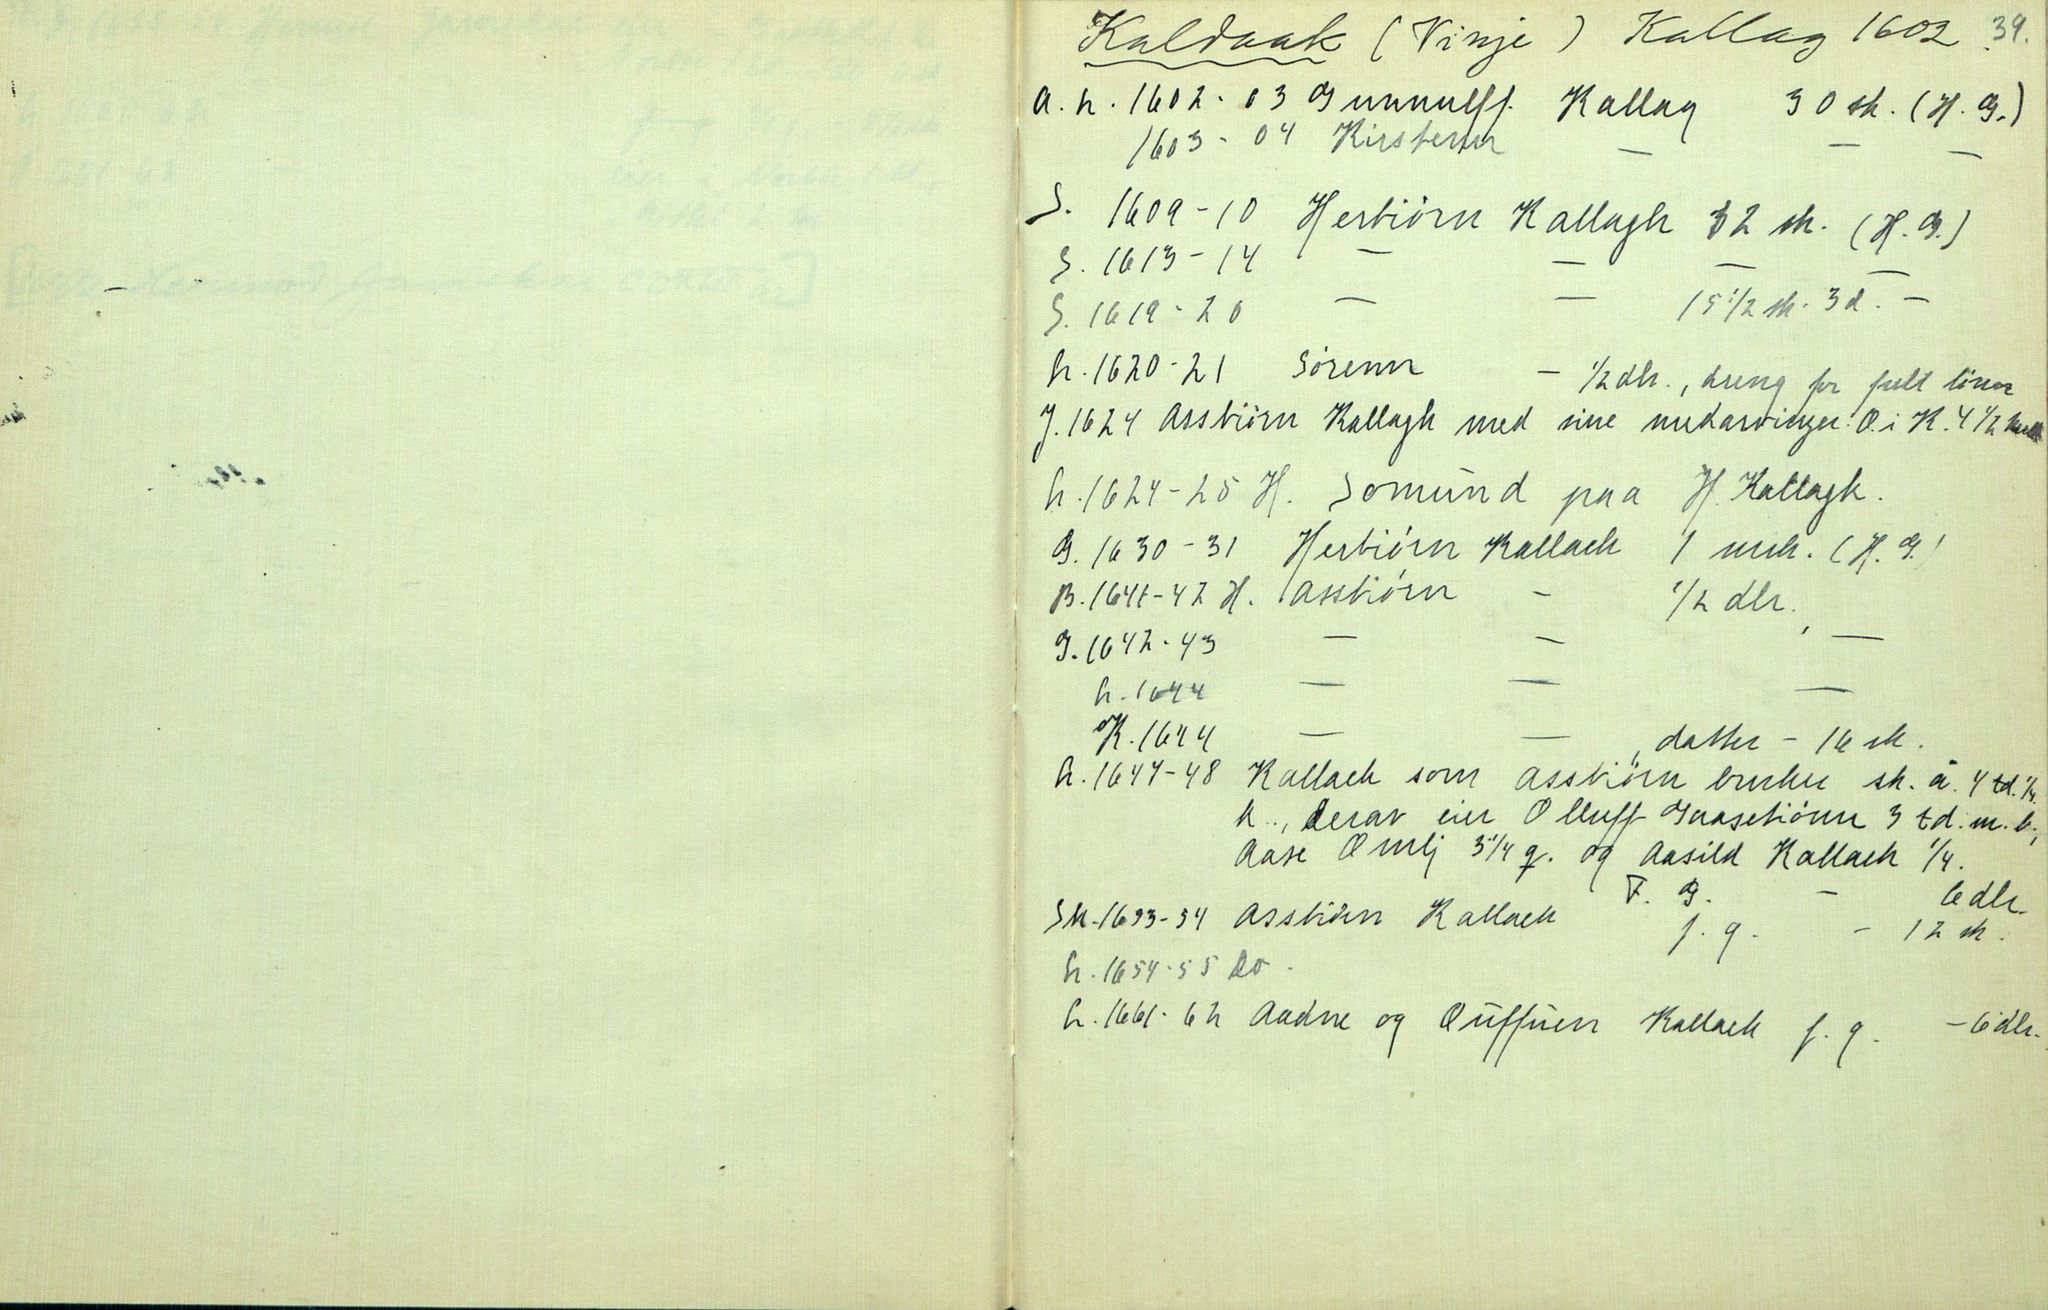 Kaldaak (Vinje) Kallag 1602 39.
a. h. 1602-03 Gunnulff Kallag 30 sk. (H. G.)
1603-04 Kirstenn — — —
S. 1609-10 Herbiörn Kallagh 32 sk. (H. G.)
S. 1613-14 — — — —
S. 1619-20 — — 15 1/2 sk. 3 d. —
h. 1620-21 Sörenn — 1/2 dlr., dreng for fult lönn
J. 1624 Assbiörn Kallagh med sine medarvinger O. i K. 4 1/2
h. 1624-25 H. Somünd paa H. Kallagh.
G. 1630-31 Herbiörn Kallach 1 mrk. (H. G.)
B. 1641-42 H. Assbiörn — 1/2 dlr.
G. 1642-43 — — , —
h. 1644 — — —
K. 1644 — — , datter — 16 sk.
h. 1647-48 Kallach som Assbiörn bruker sk. å. 4 td. 1/4
h., derav eier Olluff Gaasetiönn 3 td. m. b.,
Aase Omlj 3 1/4 q. og Aasild Kallach 1/4.
F. G. — 6 dlr.
Sk. 1653-54 Assbiörn Kallach f. g. — 12 sk.
h. 1654-55 Do.
h. 1661-62 Aadne og Oüffüen Kallach f. g. — 6 dlr.